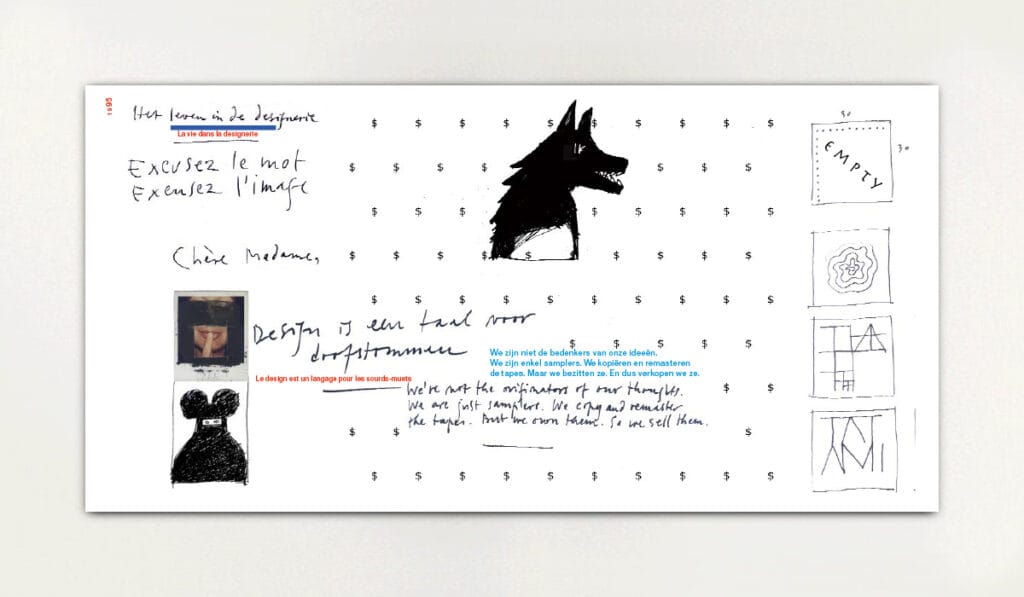 1995
Het leven in de designerie
La vie dans la designerie
Excusez le mot
Excusez l'image
Chère Madame,
Design is een taal voor
doofstommen
Le design est un langage pour les sourds-muets
We zijn niet de bedenkers van onze ideeën.
We zijn enkel samplers. We kopiëren en remasteren
de tapes. Maar we bezitten ze. En dus verkopen we ze.
We're not the originators of our thoughts.
We are just samplers. We copy and remaster
the tapes. But we own them. So we sell them.
$ $ $ $ $ $ $ $ $ $
$ $ $ $ $ $ $
$ $ $ $ $ $ $ $
$ $ $ $ $ $ $ $ $
$ $ $ $ $ $ $ $ $ $
$ $ $ $ $
$ $
$ $ $
$ $ $ $ $ $ $ $ $ $
30
30
EMPTY